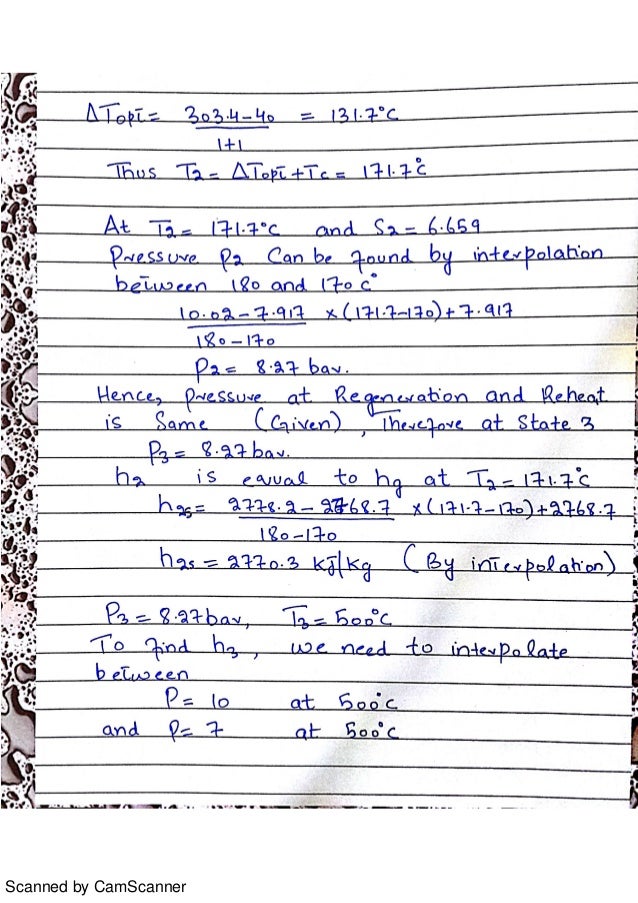 ΔTopt = 303.4-40 = 131.7°C
1+1
Thus T2 = ΔTopt + Tc = 171.7°C
At T2 = 171.7°C and S2 = 6.659
Pressure P2 Can be found by interpolation
between 180 and 170 C°
10.02 - 7.917 x (171.7-170) + 7.917
180-170
P2 = 8.27 bar.
Hence, Pressure at Regeneration and Reheat
is Same (Given), Therefore at State 3
P3 = 8.27 bar.
h2 is equal to hg at T2 = 171.7°C
h2s = 2778.2 - 2768.7 x (171.7-170) + 2768.7
180-170
h2s = 2770.3 kJ/kg (By interpolation)
P3 = 8.27 bar, T3 = 500°C
To find h3, we need to interpolate
between
P = 10 at 500°C
and P = 7 at 500°C
Scanned by CamScanner